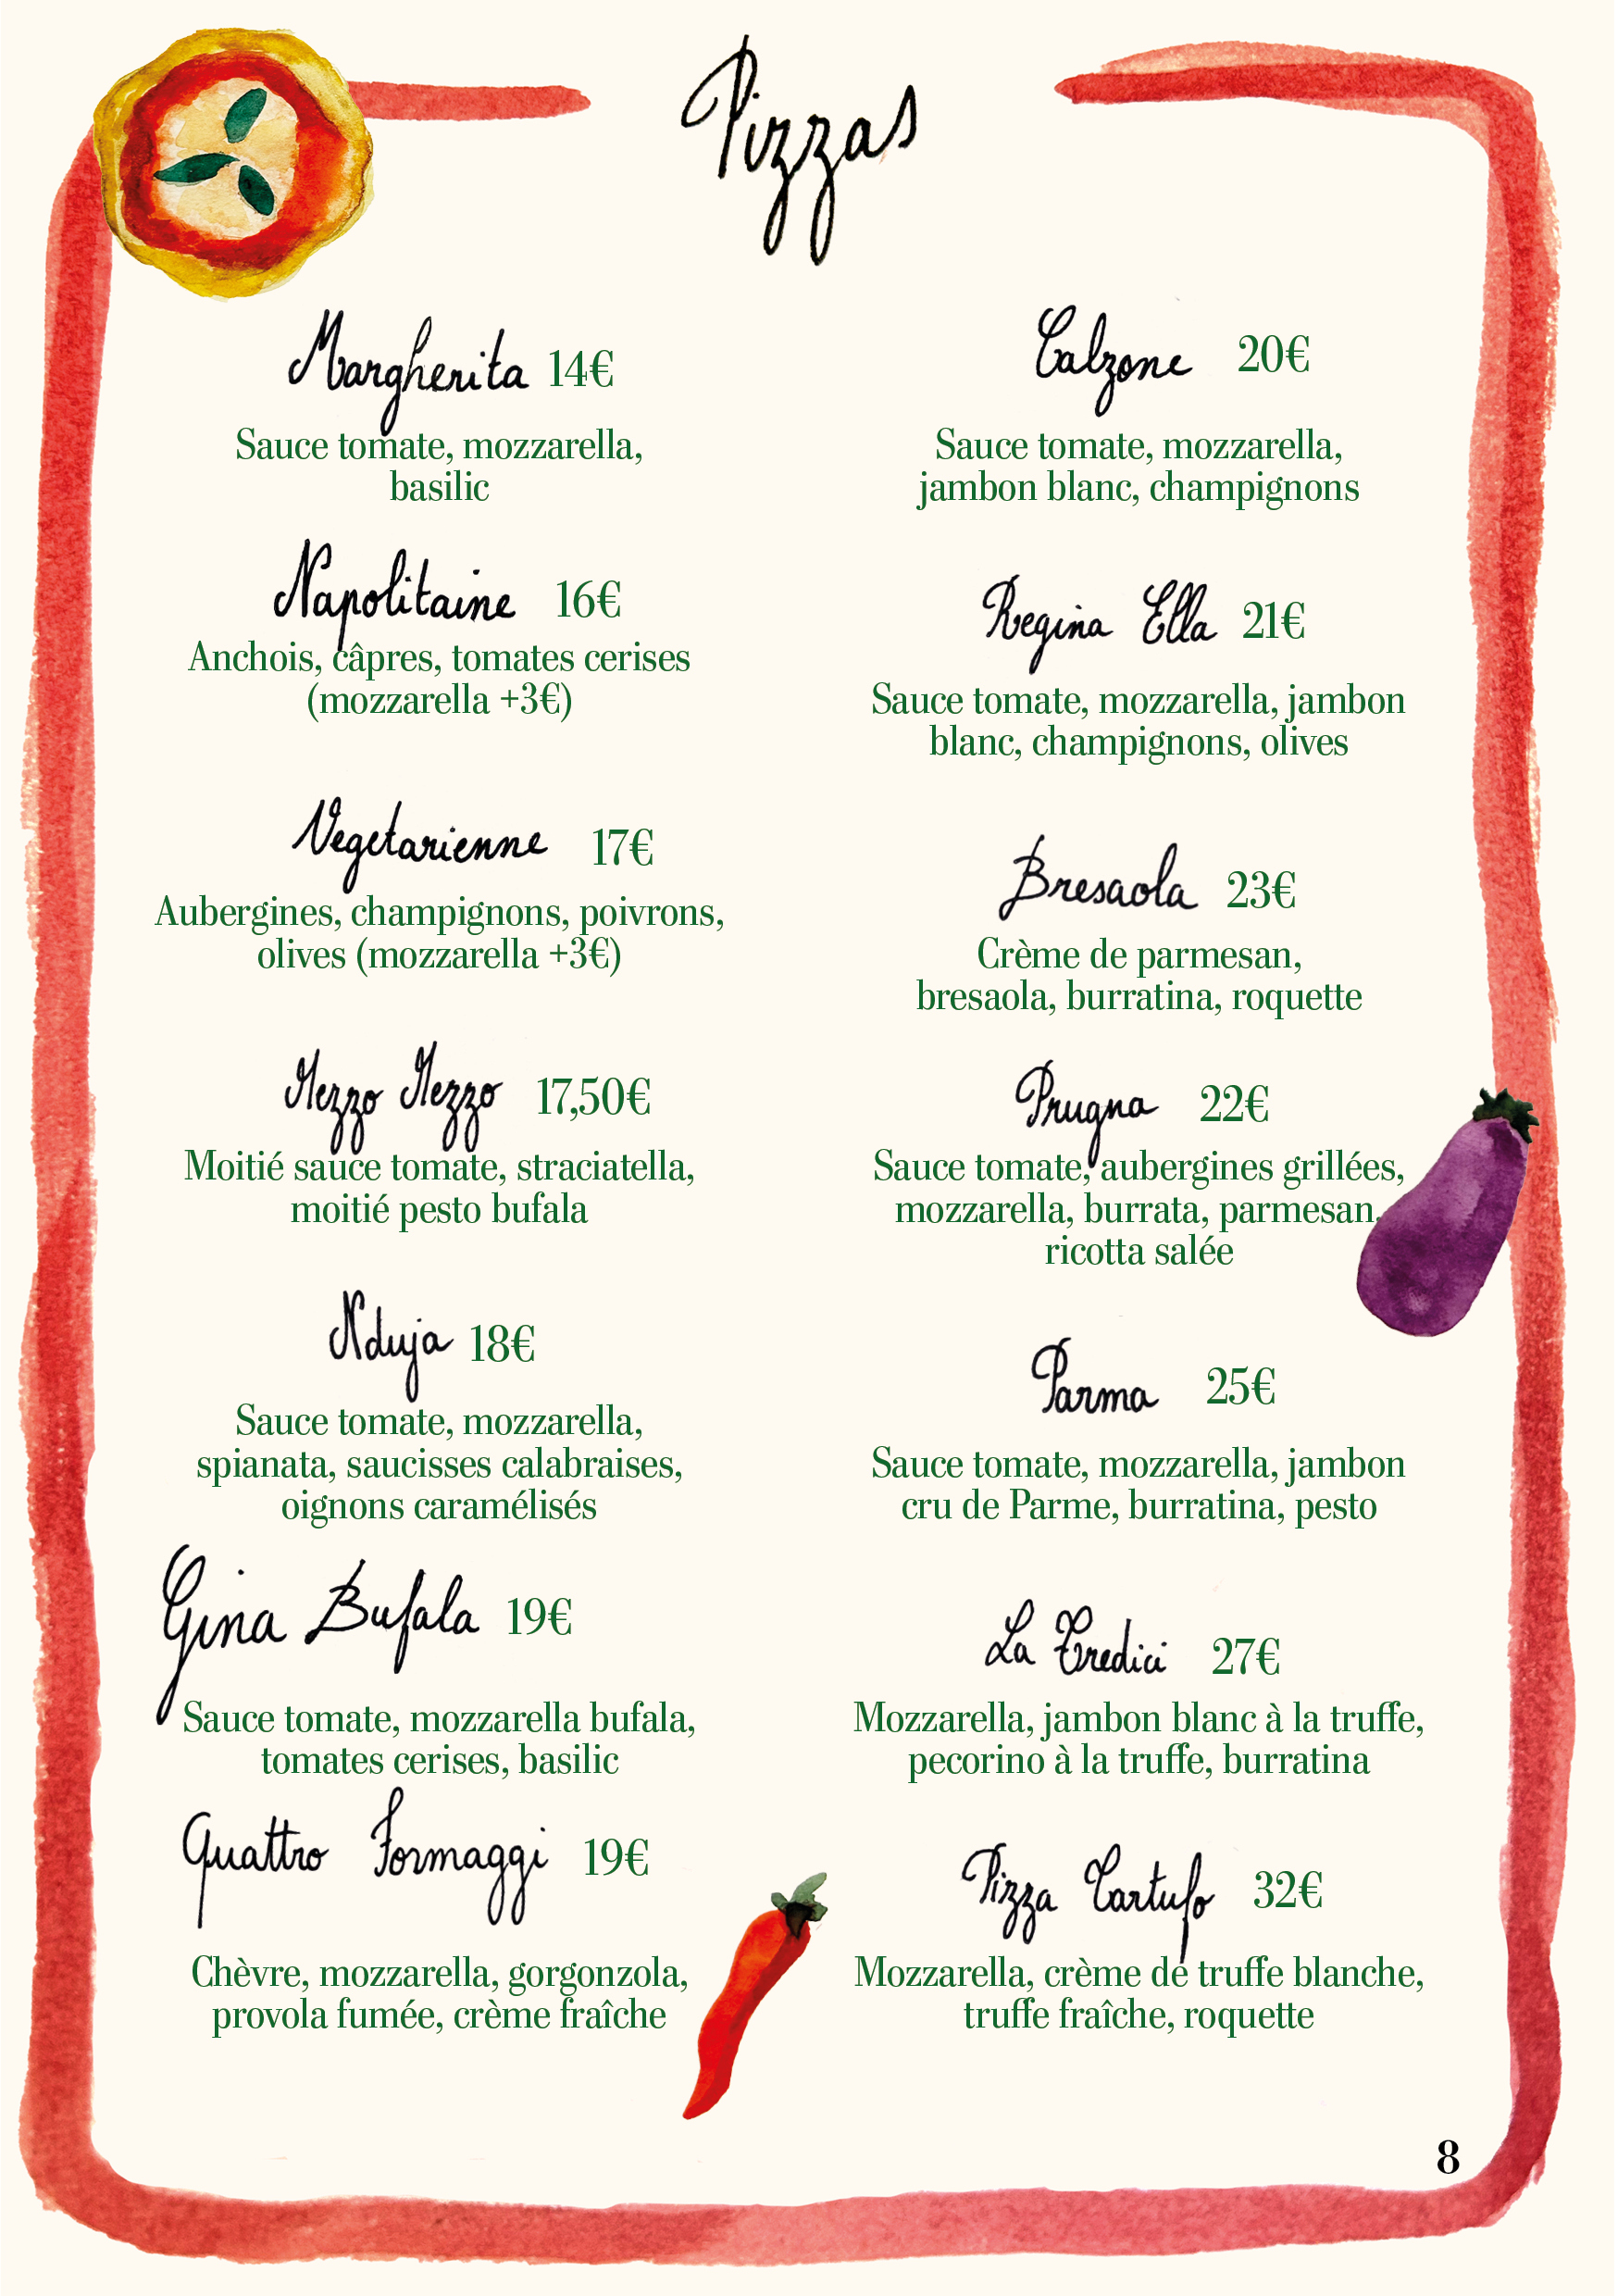 Pizzas
Margherita 14€
Sauce tomate, mozzarella,
basilic
Napolitaine 16€
Anchois, câpres, tomates cerises
(mozzarella +3€)
Vegetarienne 17€
Aubergines, champignons, poivrons,
olives (mozzarella +3€)
Mezzo Mezzo 17,50€
Moitié sauce tomate, straciatella,
moitié pesto bufala
Nduja 18€
Sauce tomate, mozzarella,
spianata, saucisses calabraises,
oignons caramélisés
Gina Bufala 19€
Sauce tomate, mozzarella bufala,
tomates cerises, basilic
Quattro Formaggi 19€
Chèvre, mozzarella, gorgonzola,
provola fumée, crème fraîche
Calzone 20€
Sauce tomate, mozzarella,
jambon blanc, champignons
Regina Ella 21€
Sauce tomate, mozzarella, jambon
blanc, champignons, olives
Bresaola 23€
Crème de parmesan,
bresaola, burratina, roquette
Prugna 22€
Sauce tomate, aubergines grillées,
mozzarella, burrata, parmesan,
ricotta salée
Parma 25€
Sauce tomate, mozzarella, jambon
cru de Parme, burratina, pesto
La Tredici 27€
Mozzarella, jambon blanc à la truffe,
pecorino à la truffe, burratina
Pizza Tartufo 32€
Mozzarella, crème de truffe blanche,
truffe fraîche, roquette
8